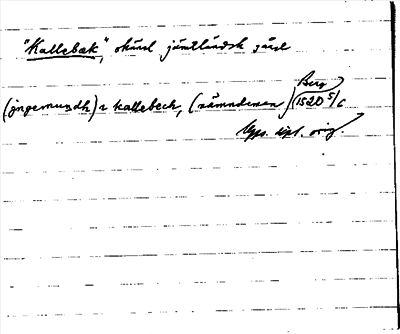 "Kallebäk", okänd jämtländsk gård
Berg
(jngemundh) i kallebeck, (nämndeman) 1520 5/6
Upps. dipl. orig.